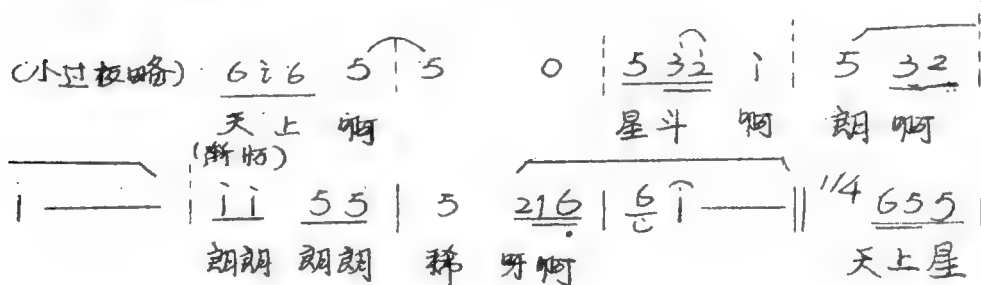 (小过板略) 6 i 6 5 | 5 0 | 5 3 2 i | 5 3 2
天上 啊 星斗 啊 朗 啊
(渐快)
1 — | i i 5 5 | 5 2 1 6 | 6 1 — || 1/4 6 5 5
朗朗 朗朗 稀 呀啊 天上星